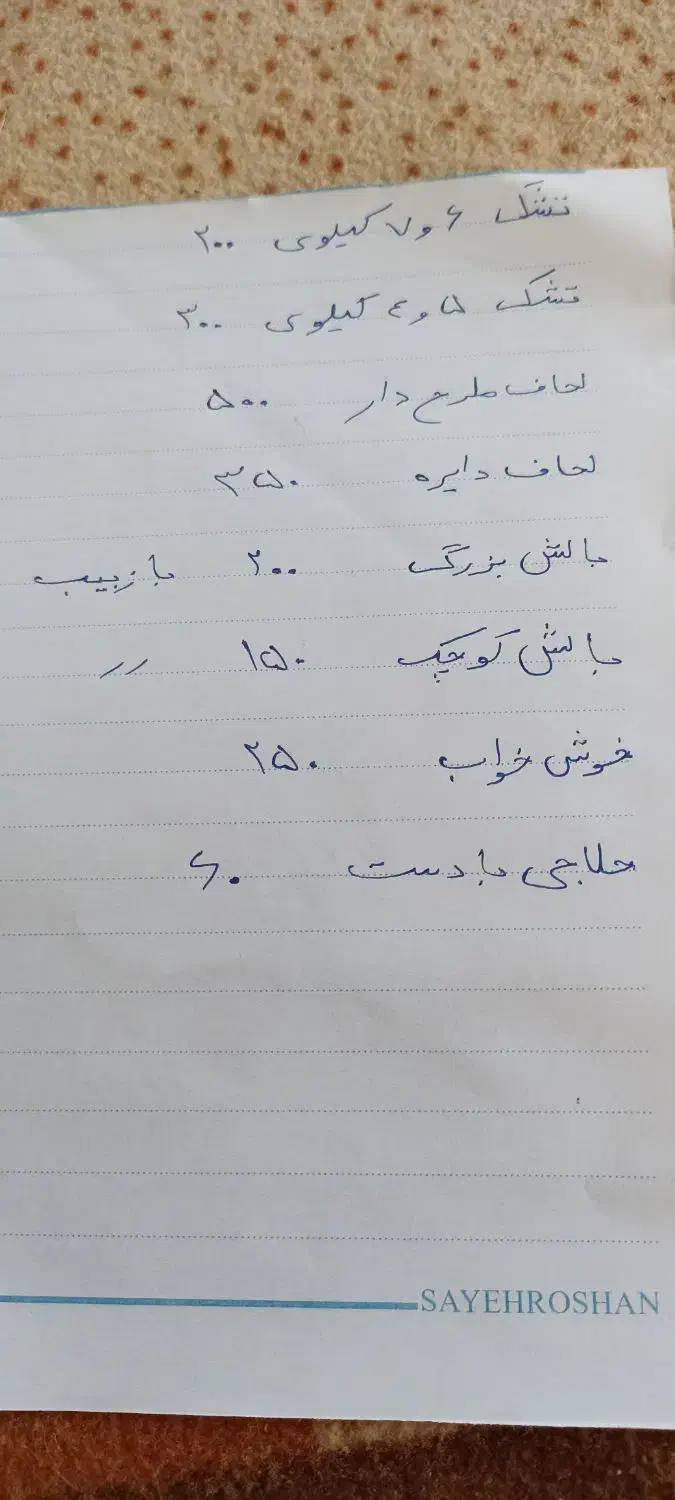 تشک ۶ و ۷ کیلوی ۲۰۰
تشک ۵ و ٤ کیلوی ۳۰۰
لحاف طرح دار ۵۰۰
لحاف دایره ۳۵۰
بالش بزرگ ۲۰۰ با زیپ
بالش کوچک ۱۵۰ //
خوش خواب ۲۵۰
حلاجی با دست ۶۰
SAYEHROSHAN